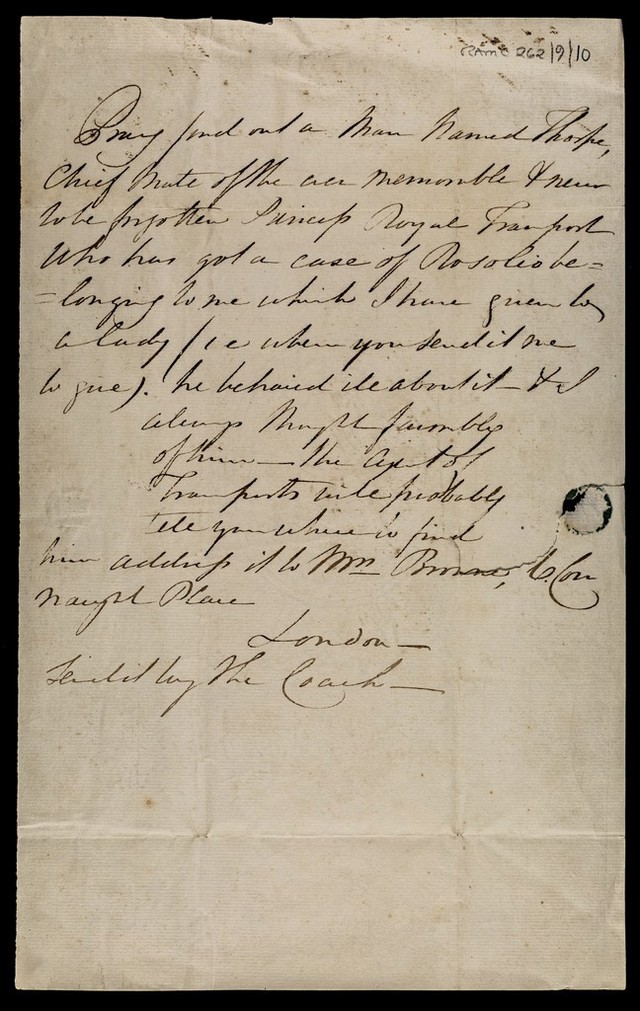 RAMC 262/9/10
Pray find out a Man Named Thorpe,
Chief Mate of the ever memorable & never
to be forgotten Princess Royal Transport
who has got a case of Rosolio be=
=longing to me which I have given to
a lady (i e when you send it me
to give). he behaved ill about it - & I
always thought favorably
of him — the Agent of
Transports will probably
tell you where to find
him address it to Mrs Browne, 6 Con
naught Place
London —
Send it by the Coach —